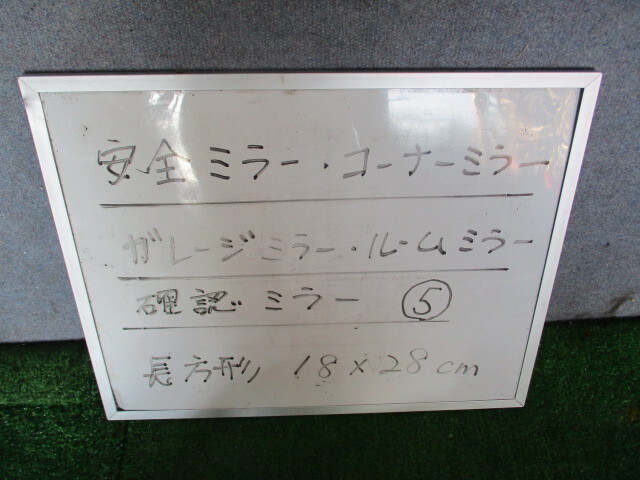 安全ミラー・コーナーミラー
ガレージミラー・ルームミラー
確認ミラー ⑤
長方形 18×28cm